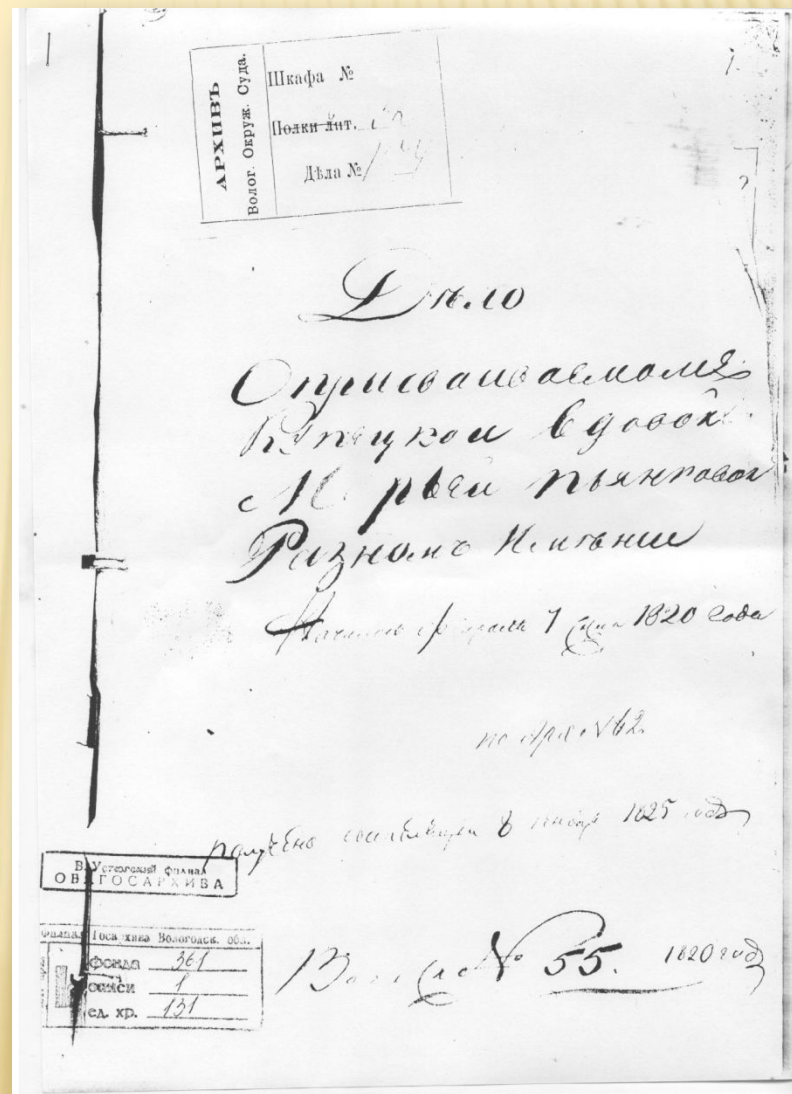 АРХИВЪ
Волог. Окруж. Суда.
Шкафа №
Полки лит.
Дѣла №
Дѣло
О присваиваемомъ
Купецкой вдовой
Марьей Пьянковой
Разномъ Имѣнии
февраля 7 дня 1820 года
по №62.
8 1825 года
В. Устюгский филиал
ОБЛГОСАРХИВА
филиал Госархива Вологодск. обл.
фонда 361
описи 1
ед. хр. 131
№ 55. 1820 год